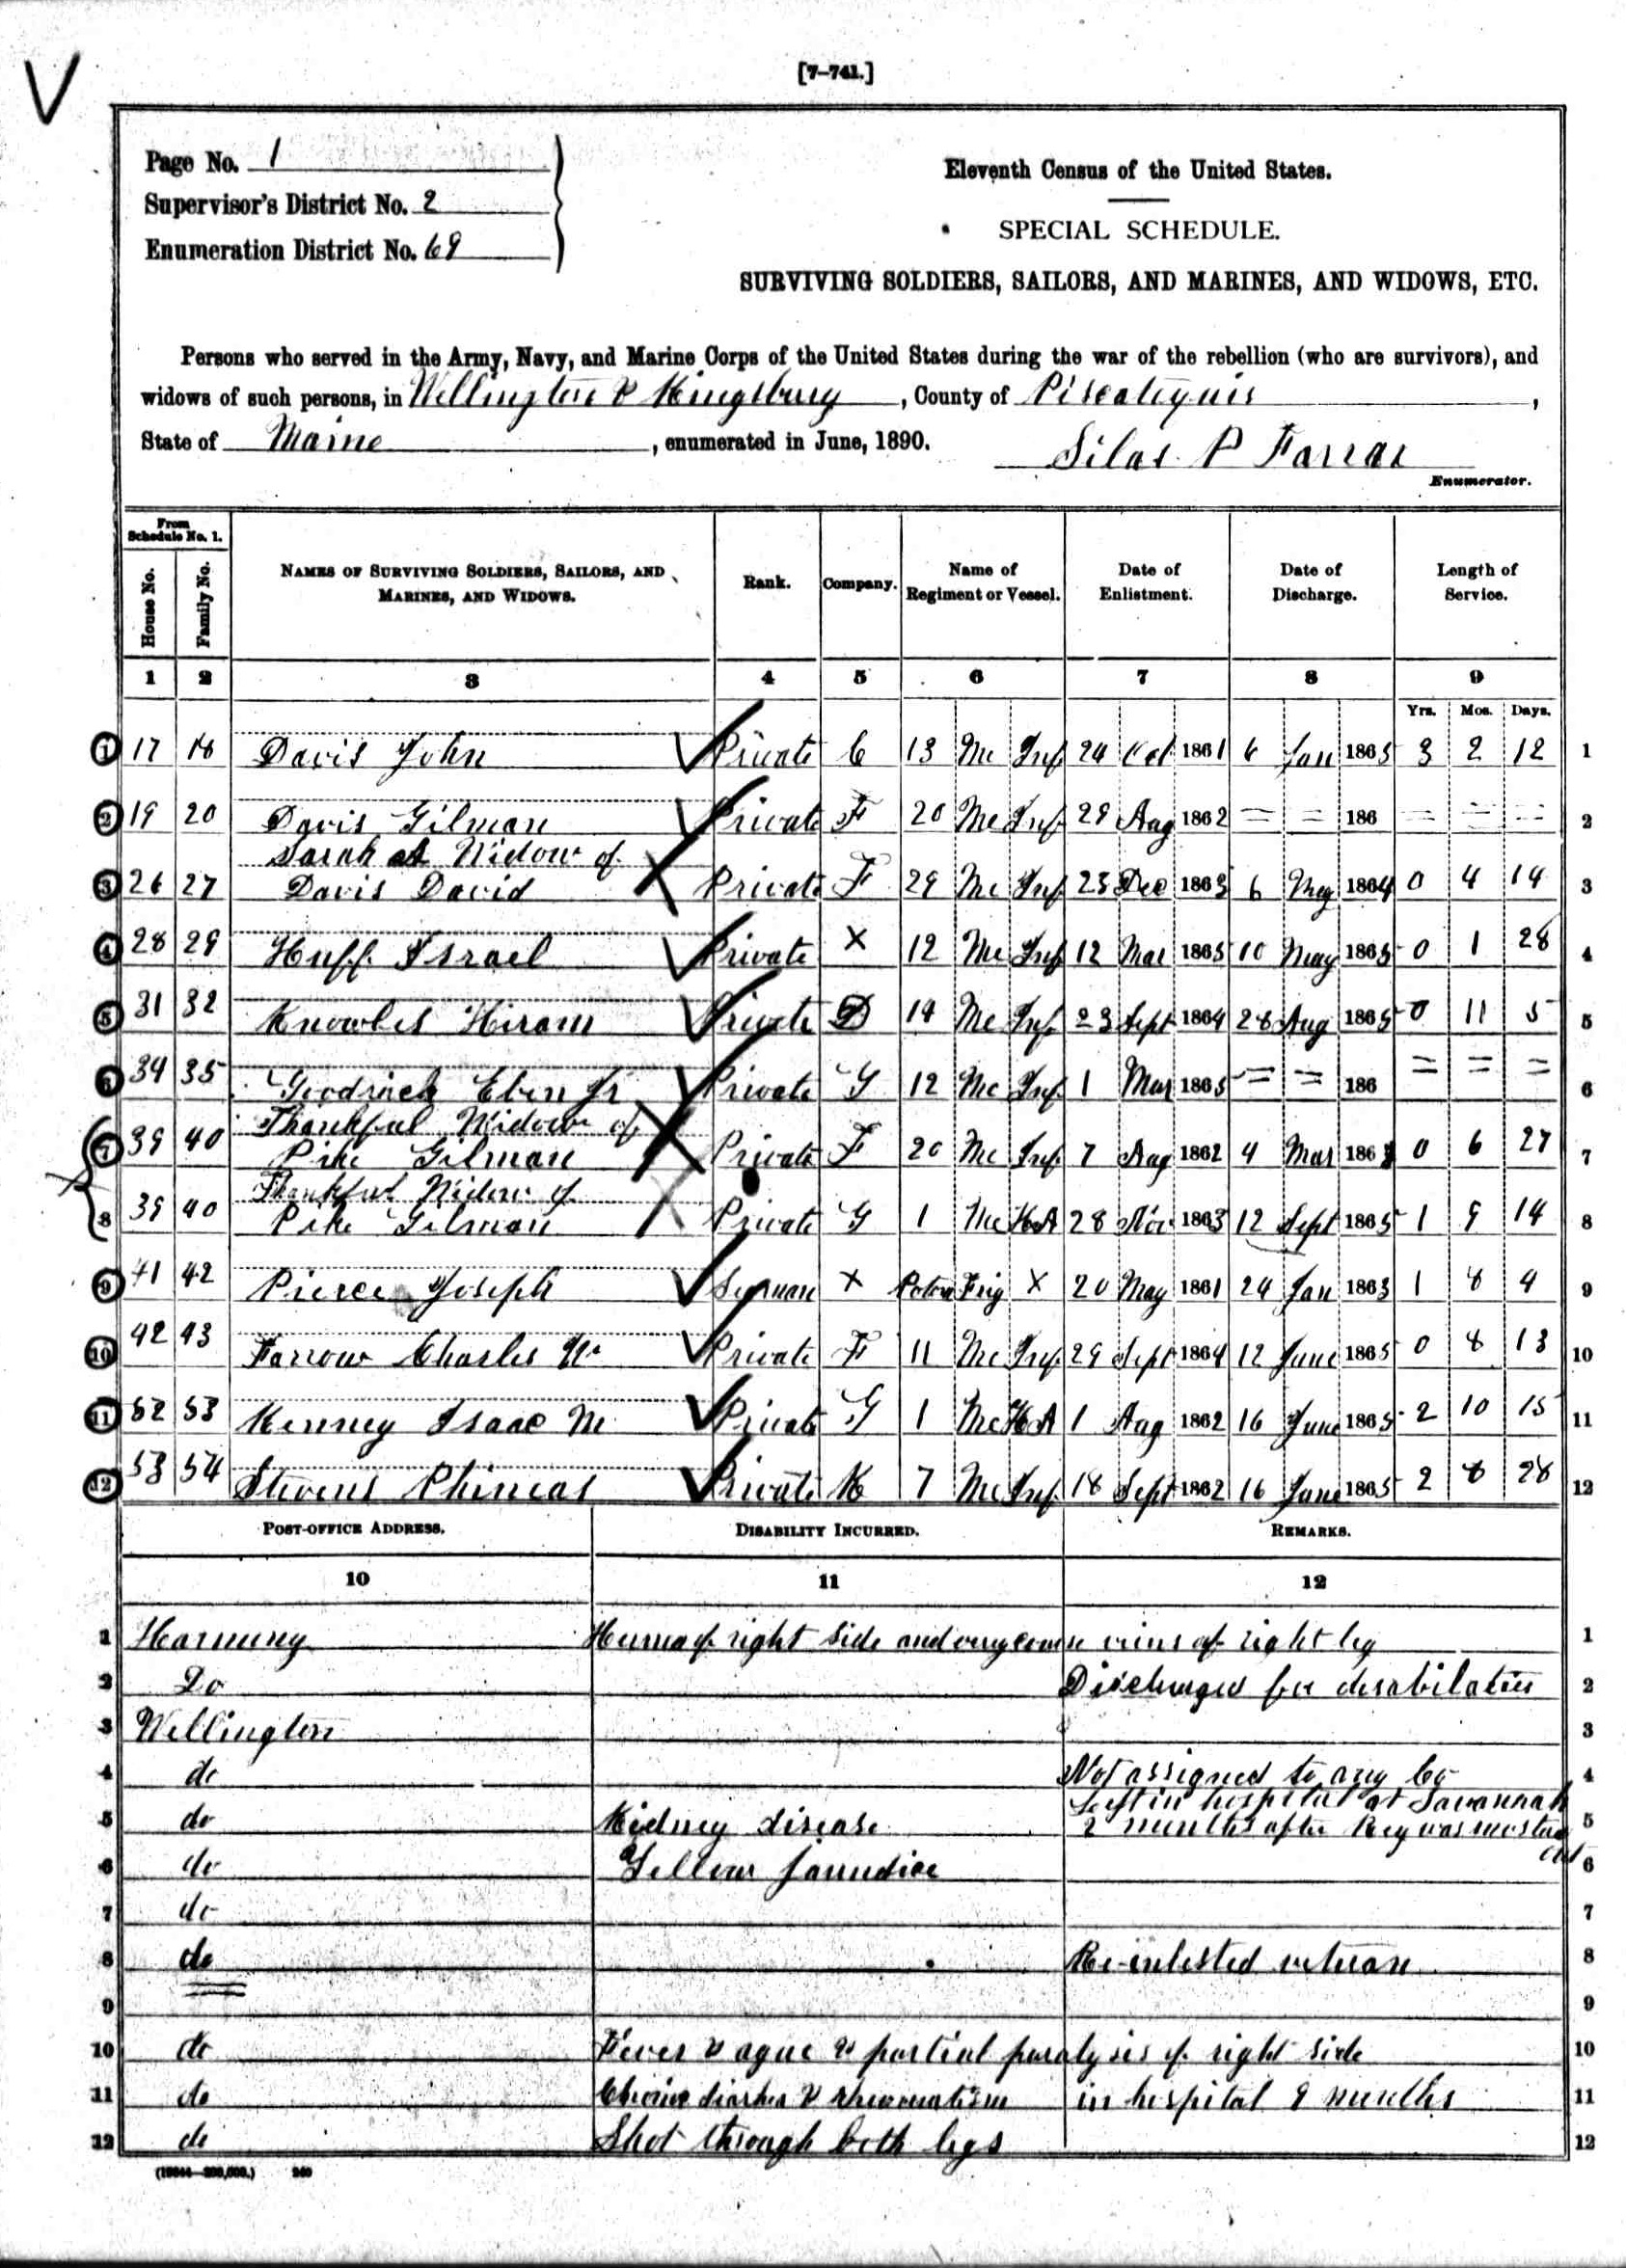 V
[7–741.]
Page No. 1
Supervisor's District No. 2
Enumeration District No. 69
Eleventh Census of the United States.
SPECIAL SCHEDULE.
SURVIVING SOLDIERS, SAILORS, AND MARINES, AND WIDOWS, ETC.
Persons who served in the Army, Navy, and Marine Corps of the United States during the war of the rebellion (who are survivors), and
widows of such persons, in Wellington & Kingsbury, County of Piscataquis,
State of Maine, enumerated in June, 1890.
Silas P Farrar
Enumerator.
From Schedule No. 1.
House No. Family No. NAMES OF SURVIVING SOLDIERS, SAILORS, AND MARINES, AND WIDOWS. Rank. Company. Name of Regiment or Vessel. Date of Enlistment. Date of Discharge. Length of Service.
1 2 3 4 5 6 7 8 9
Yrs. Mos. Days.
1 17 18 Davis John Private C 13 Me Inf 24 Oct 1861 6 Jan 1865 3 2 12 1
2 19 20 Davis Gilman Private F 20 Me Inf 29 Aug 1862 = = 186 = = = 2
Sarah A Widow of
3 26 27 Davis David Private F 29 Me Inf 23 Dec 1863 6 May 1864 0 4 14 3
4 28 29 Huff Israel Private X 12 Me Inf 12 Mar 1865 10 May 1865 0 1 28 4
5 31 32 Knowles Hiram Private D 14 Me Inf 23 Sept 1864 28 Aug 1865 0 11 5 5
6 34 35 Goodrich Eben Jr Private G 12 Me Inf 1 Mar 1865 = = 186 = = = 6
Thankful Widow of
7 39 40 Pike Gilman Private F 20 Me Inf 7 Aug 1862 4 Mar 1863 0 6 27 7
Thankful Widow of
8 39 40 Pike Gilman Private G 1 Me H A 28 Nov 1863 12 Sept 1865 1 9 14 8
9 41 42 Pierce Joseph Seaman X Frig X 20 May 1861 24 Jan 1863 1 8 4 9
10 42 43 Farrow Charles W Private F 11 Me Inf 29 Sept 1864 12 June 1865 0 8 13 10
11 52 53 Kenney Isaac M Private G 1 Me H A 1 Aug 1862 16 June 1865 2 10 15 11
12 53 54 Stevens Phineas Private K 7 Me Inf 18 Sept 1862 16 June 1865 2 8 28 12
POST-OFFICE ADDRESS. DISABILITY INCURRED. REMARKS.
10 11 12
1 Harmony Hernia of right side and very coarse veins of right leg 1
2 Do Discharged for disabilaties 2
3 Wellington 3
4 do Not assigned to any Co 4
Left in hospital at Savannah
5 do Kidney disease 2 months after Reg was mustered 5
out
6 do Yellow Jaundice 6
7 do 7
8 do Re-enlisted veteran 8
9 9
10 do Fever & ague & partial paralysis of right side 10
11 do Chronic diarhea & rheumatism in hospital 9 months 11
12 do Shot through both legs 12